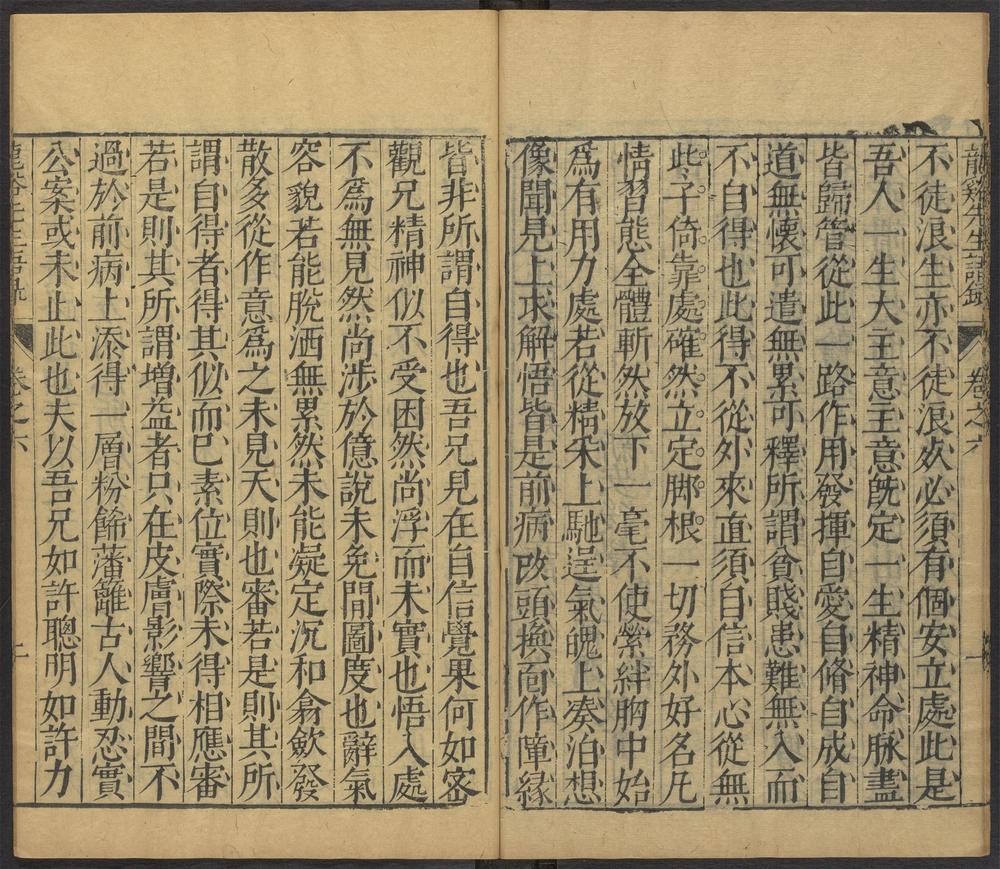 龍谿先生語錄 卷之六
不徒浪生亦不徒浪死必須有個安立處此是
吾人一生大主意主意旣定一生精神命脉盡
皆歸管從此一路作用發揮自愛自脩自成自
道無懷可遣無累可釋所謂貧賤患難無入而
不自得也此得不從外來直須自信本心從無
此子倚靠處確然立定脚根一切務外好名凡
情習態全體斬然放下一毫不使縈絆胸中始
爲有用力處若從精采上馳逞氣魄上凑泊想
像聞見上求解悟皆是前病改頭換面作障緣
皆非所謂自得也吾兄見在自信覺果何如密
觀兄精神似不受困然尚浮而未實也悟入處
不爲無見然尚涉於億說未免間圖度也辭氣
容貌若能脫洒無累然未能凝定沉和翕歛發
散多從作意爲之未見天則也審若是則其所
謂自得者得其似而已素位實際未得相應審
若是則其所謂增益者只在皮膚影響之間不
過於前病上添得一層粉餙藩籬古人動忍實
公案或未止此也夫以吾兄如許聰明如許力
龍谿先生語錄 卷之六